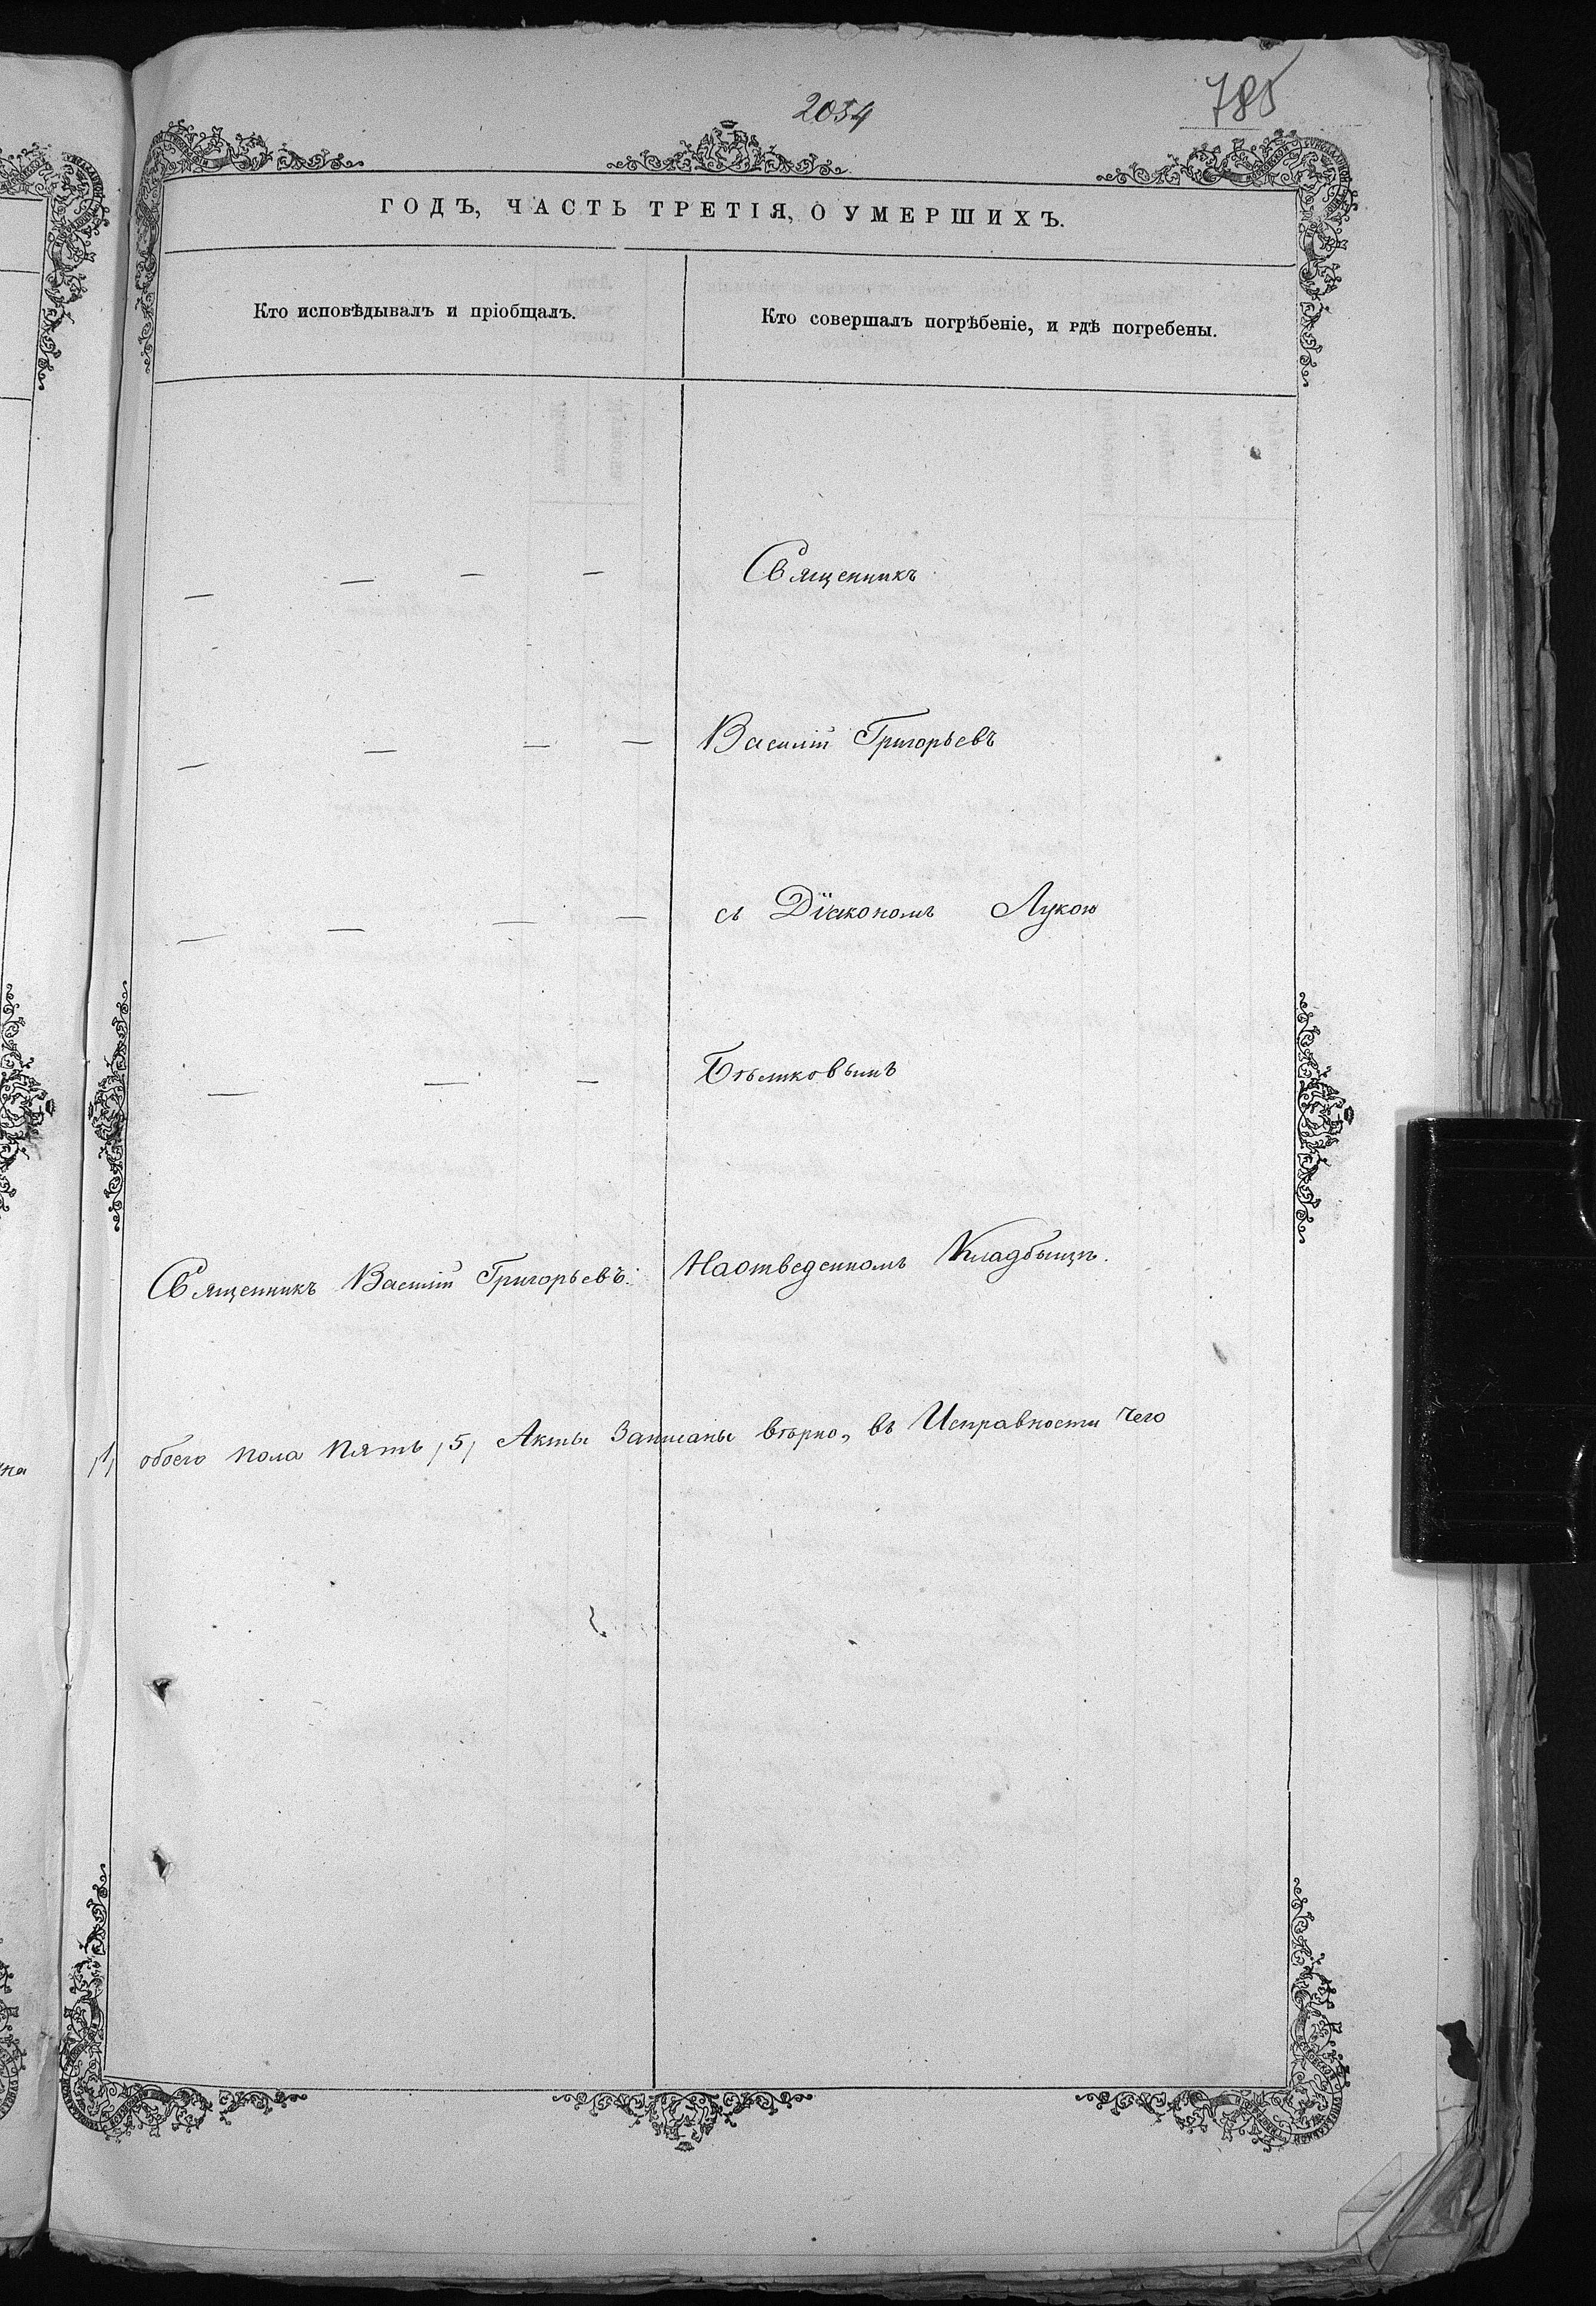 2054
785
ГОДЪ, ЧАСТЬ ТРЕТІЯ, О УМЕРШИХЪ.
Кто исповѣдывалъ и пріобщалъ.
Кто совершалъ погрѣбеніе, и гдѣ погребены.
— — — — Священникъ
— — — — Василій Григорьевъ
— — — — съ Діакономъ Лукою
— — — Бѣликовымъ
Священникъ Василій Григорьевъ. Наотведенномъ Кладбыщѣ.
/1/ обоего пола пять /5/ Акты Записаны вѣрно, въ Исправности чего